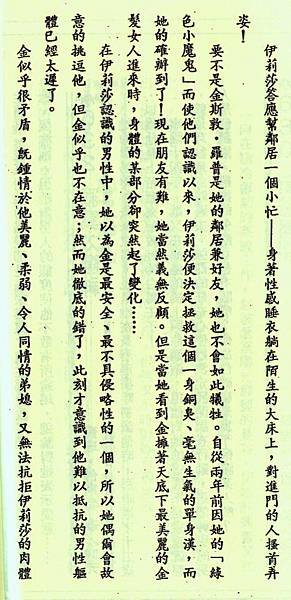 伊莉莎答應幫鄰居一個小忙——身著性感睡衣躺在陌生的大床上，對進門的人搔首弄
姿！
要不是金斯敦．羅普是她的鄰居兼好友，她也不會如此犧牲。自從兩年前因她的「綠
色小魔鬼」而使他們認識以來，伊莉莎便決定拯救這個一身銅臭、毫無生氣的單身漢，而
她的確辦到了！現在朋友有難，她當然義無反顧。但是當她看到金擁著天底下最美麗的金
髮女人進來時，身體的某部分卻突然起了變化……
在伊莉莎認識的男性中，她以為金是最安全、最不具侵略性的一個，所以她偶爾會故
意的挑逗他，但金似乎也不在意；然而她徹底的錯了，此刻才意識到他難以抵抗的男性軀
體已經太遲了。
金似乎很矛盾，既鍾情於他美麗、柔弱、令人同情的弟媳，又無法抗拒伊莉莎的肉體